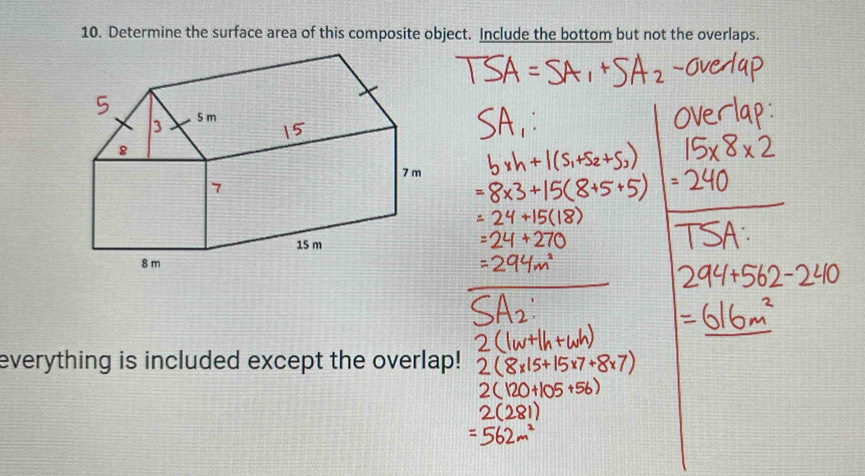 10. Determine the surface area of this composite object. Include the bottom but not the overlaps.
5
3
5 m
8
15
7 m
7
15 m
8 m
everything is included except the overlap!
TSA = SA₁ + SA₂ - overlap
SA₁:
b×h + l(S₁+S₂+S₃)
= 8×3 + 15(8+5+5)
= 24 + 15(18)
= 24 + 270
= 294m²
SA₂:
2(lw+lh+wh)
2(8×15+15×7+8×7)
2(120+105+56)
2(281)
= 562m²
overlap:
15×8×2
= 240
TSA:
294+562-240
= 616m²